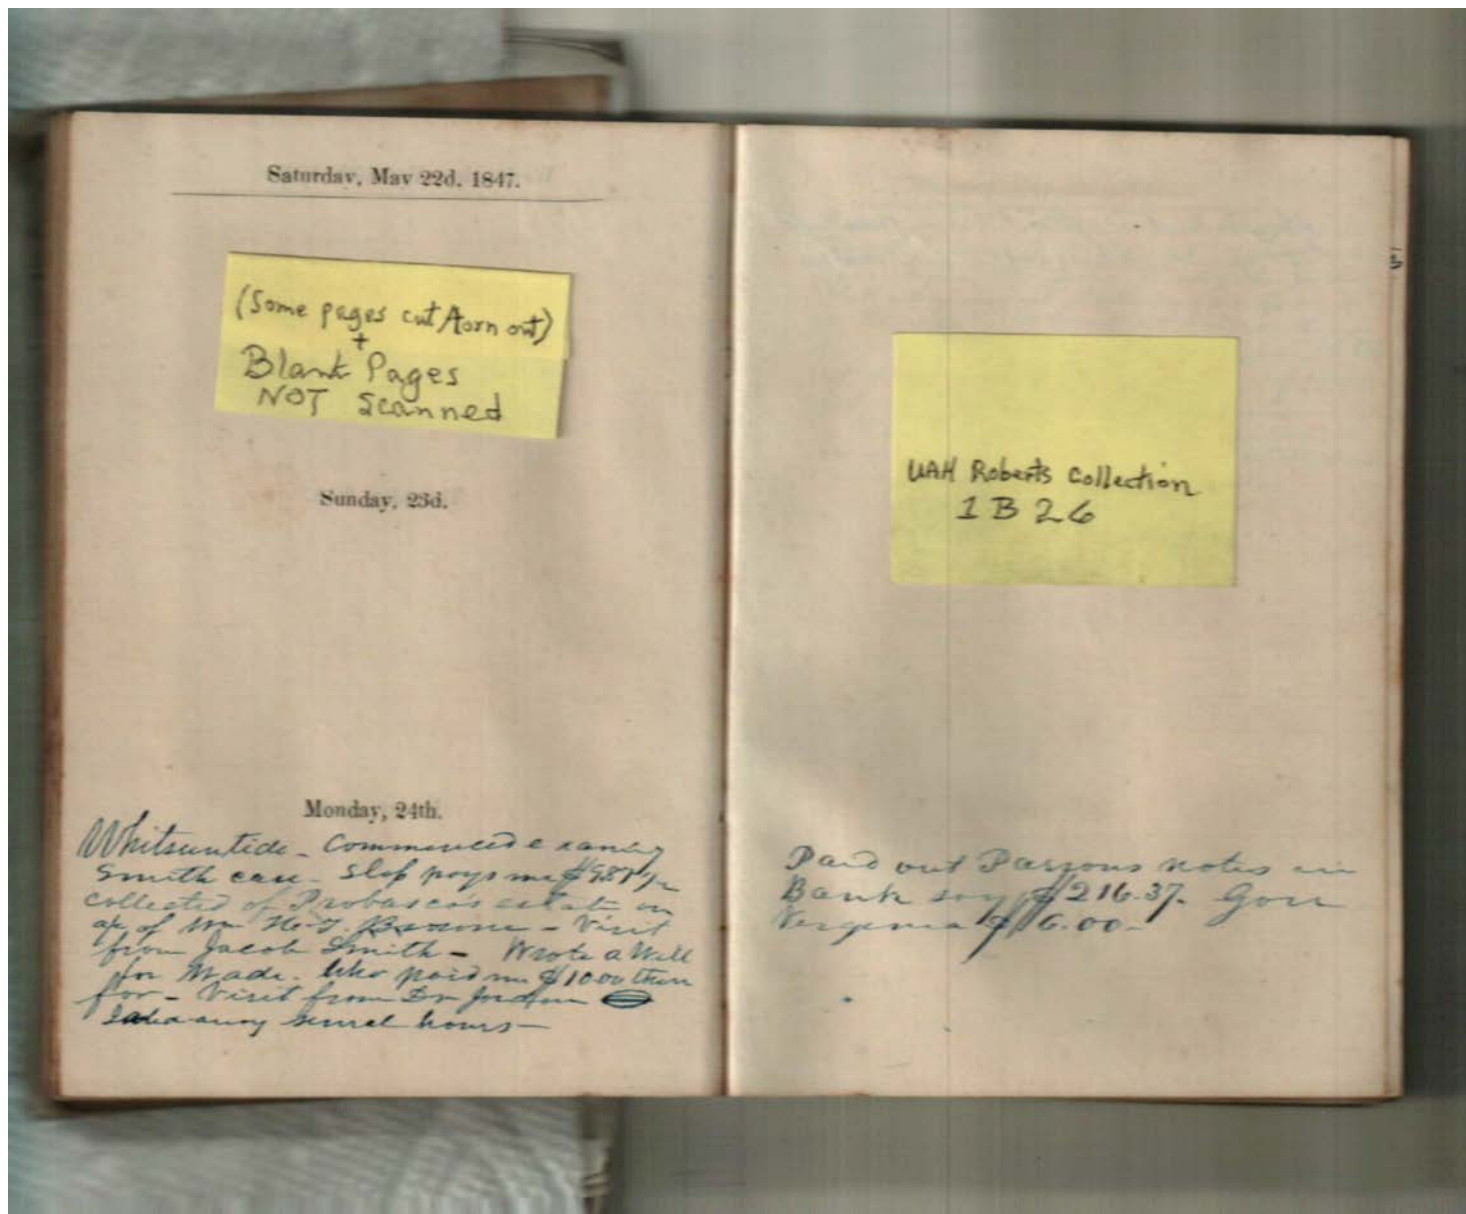 Saturday, May 22d. 1847.
(Some pages cut/torn out)
+
Blank Pages
NOT Scanned
Sunday, 23d.
Monday, 24th.
Whitsuntide - Commenced
Smith case - pays me
collected of Probasco's estate on
of Wm H. - Visit
from Jacob Smith - Wrote a Will
for Wade. Who paid me $10.00 there
for - Visit from Dr Jordan
hours -
UAH Roberts Collection
1 B 26
Paid out Parsons notes in
Bank say $216.37.
Virginia $6.00 -